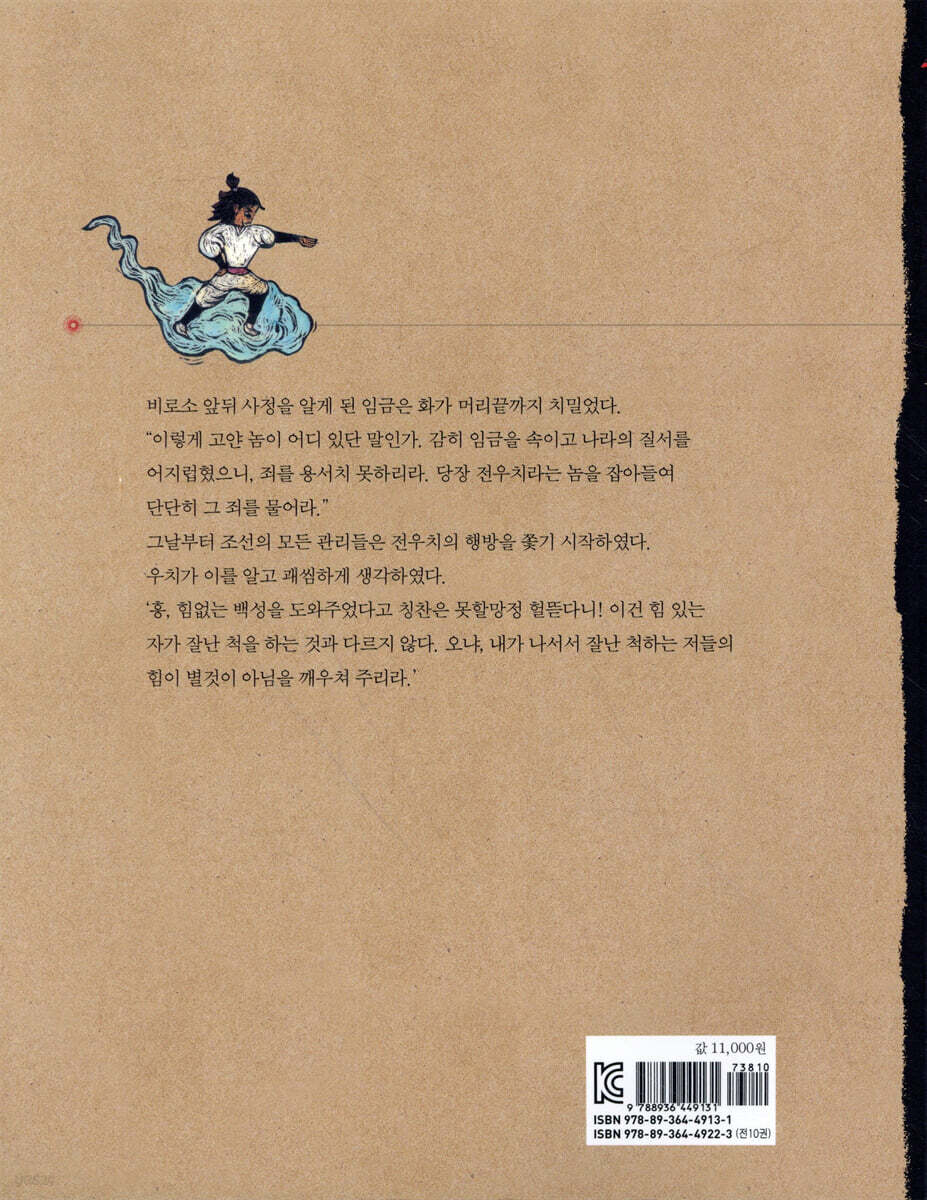 비로소 앞뒤 사정을 알게 된 임금은 화가 머리끝까지 치밀었다.
“이렇게 고얀 놈이 어디 있단 말인가. 감히 임금을 속이고 나라의 질서를
어지럽혔으니, 죄를 용서치 못하리라. 당장 전우치라는 놈을 잡아들여
단단히 그 죄를 물어라.”
그날부터 조선의 모든 관리들은 전우치의 행방을 쫓기 시작하였다.
우치가 이를 알고 괘씸하게 생각하였다.
‘흥, 힘없는 백성을 도와주었다고 칭찬은 못할망정 헐뜯다니! 이건 힘 있는
자가 잘난 척을 하는 것과 다르지 않다. 오냐, 내가 나서서 잘난 척하는 저들의
힘이 별것이 아님을 깨우쳐 주리라.’
값 11,000원
73810
9 788936 449131
ISBN 978-89-364-4913-1
ISBN 978-89-364-4922-3 (전10권)
yes24